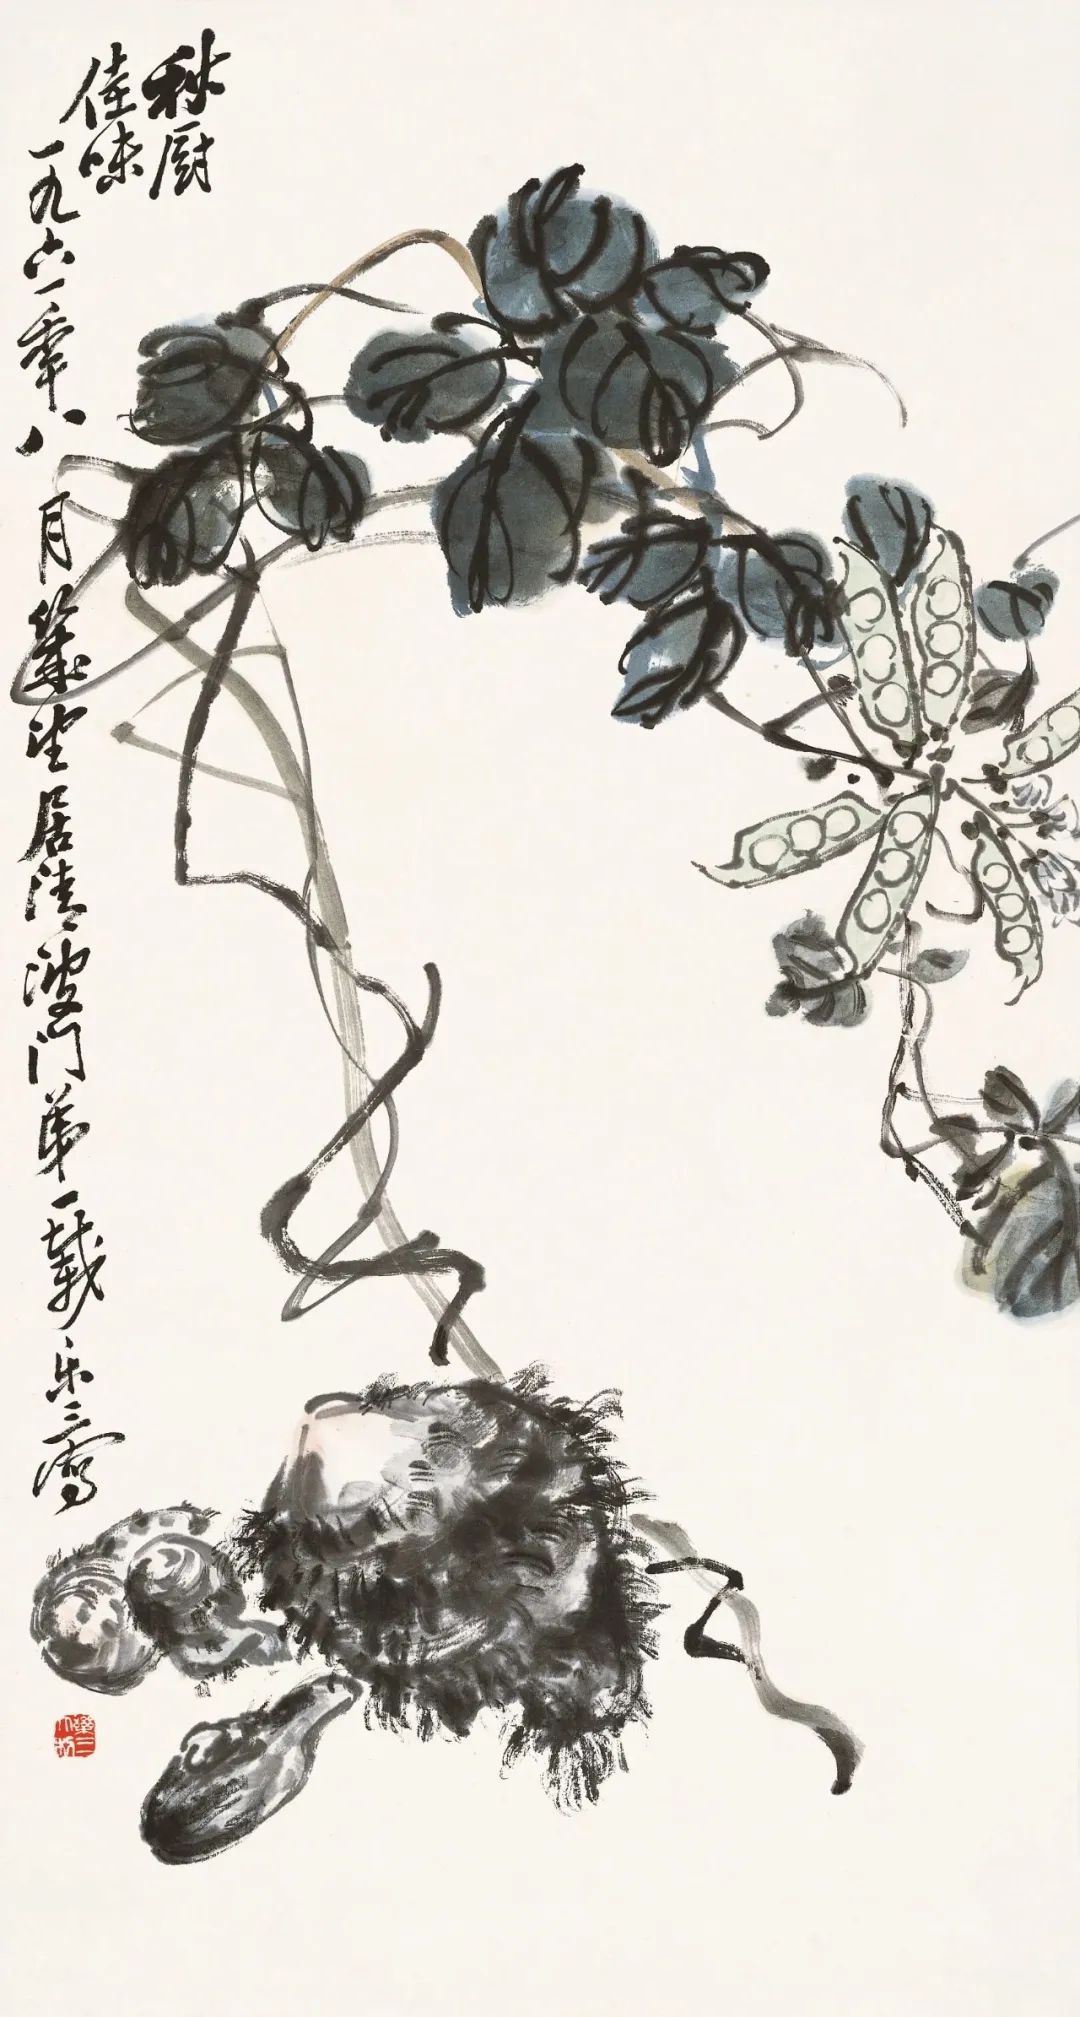 秋厨
佳味
一九六一年八月幾望居清波门第一载乐三写